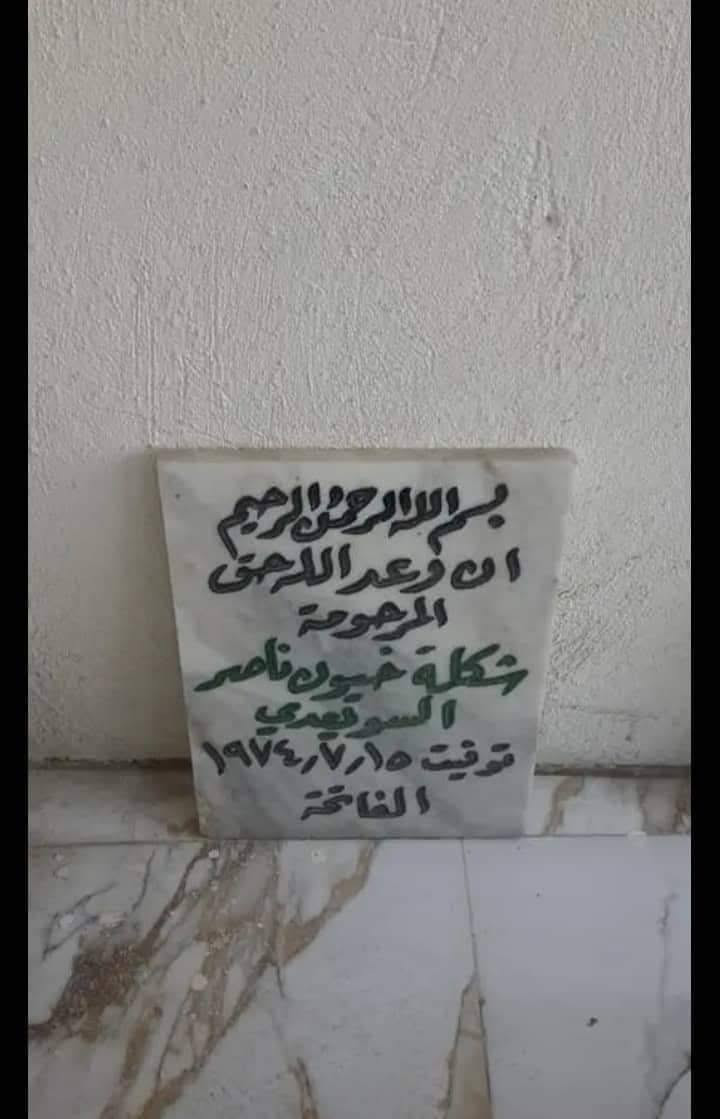 بسم الله الرحمن الرحيم
ان وعد الله حق
المرحومة
شكلة خيون ناصر
السويعدي
توفيت ١٩٧٤/٧/١٥
الفاتحة